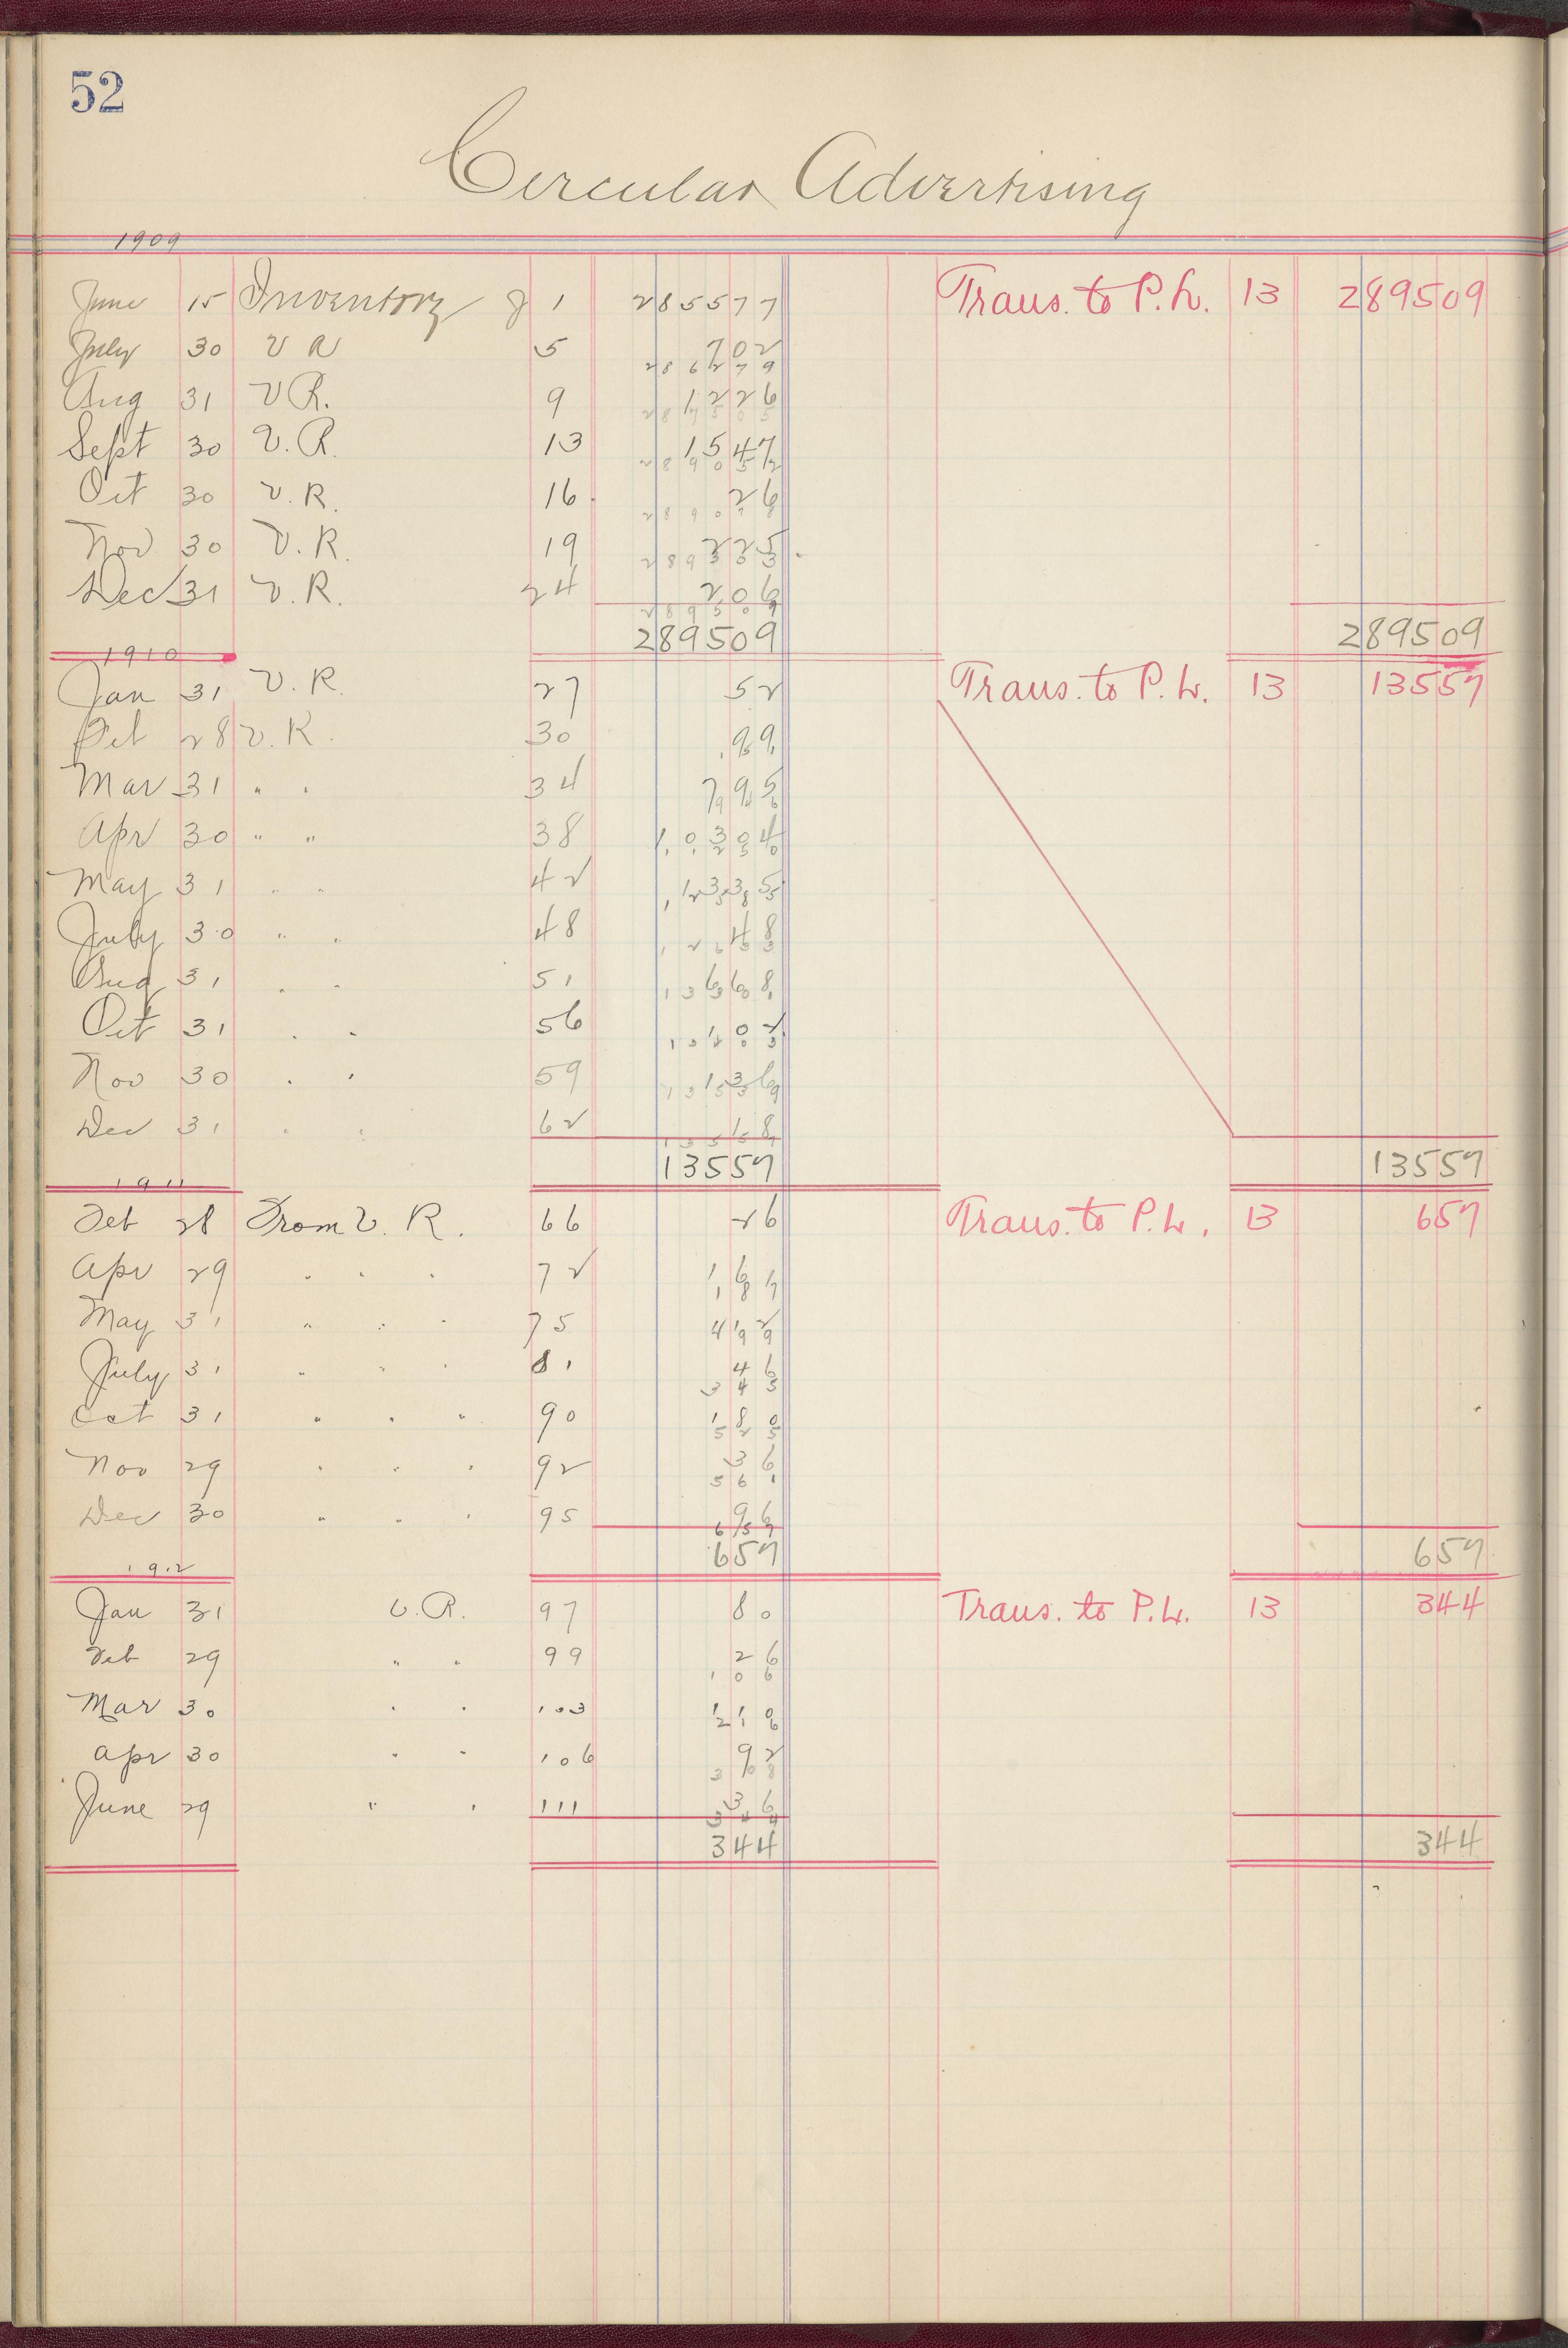 52
Circular Advertising
1909
June 15 Inventory J 1 285577 Trans. to P.L. 13 289509
July 30 V R 5 702
286279
Aug 31 V R. 9 1226
287505
Sept 30 V. R. 13 1547
289052
Oct 30 V. R. 16 26
289078
Nov 30 V. R. 19 225
289303
Dec 31 V. R. 24 206
289509
289509 289509
1910
Jan 31 V. R. 27 52 Trans. to P. L. 13 13557
Feb 28 V. R. 30 99
Mar 31 " " 34 795
946
Apr 30 " " 38 10304
11250
May 31 " " 42 1335
12585
July 30 " " 48 48
12633
Aug 31 " " 51 668
13301
Oct 31 " " 56 102
13403
Nov 30 " " 59 136
13539
Dec 31 " " 62 18
13557
13557 13557
1911
Feb 28 From V. R. 66 26 Trans. to P. L. 13 657
Apr 29 " " " 72 161
187
May 31 " " " 75 112
299
July 31 " " " 81 46
345
Oct 31 " " " 90 180
525
Nov 29 " " " 92 36
561
Dec 30 " " " 95 96
657
657 657
1912
Jan 31 V. R. 97 80 Trans. to P. L. 13 344
Feb 29 " " 99 26
106
Mar 30 " " 103 110
216
Apr 30 " " 106 92
308
June 29 " " 111 36
344
344 344